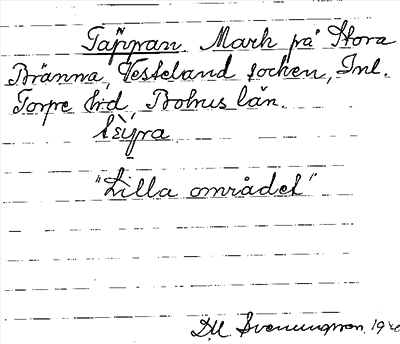 Täppan. Mark på Stora
Bränna, Vesteland socken, Inl.
Torpe h:d, Bohus län.
"Lilla området"
D.U. Svenungsson.